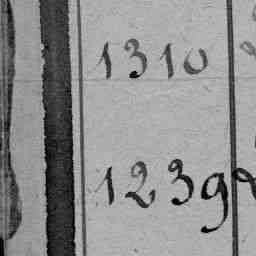 1310
1239